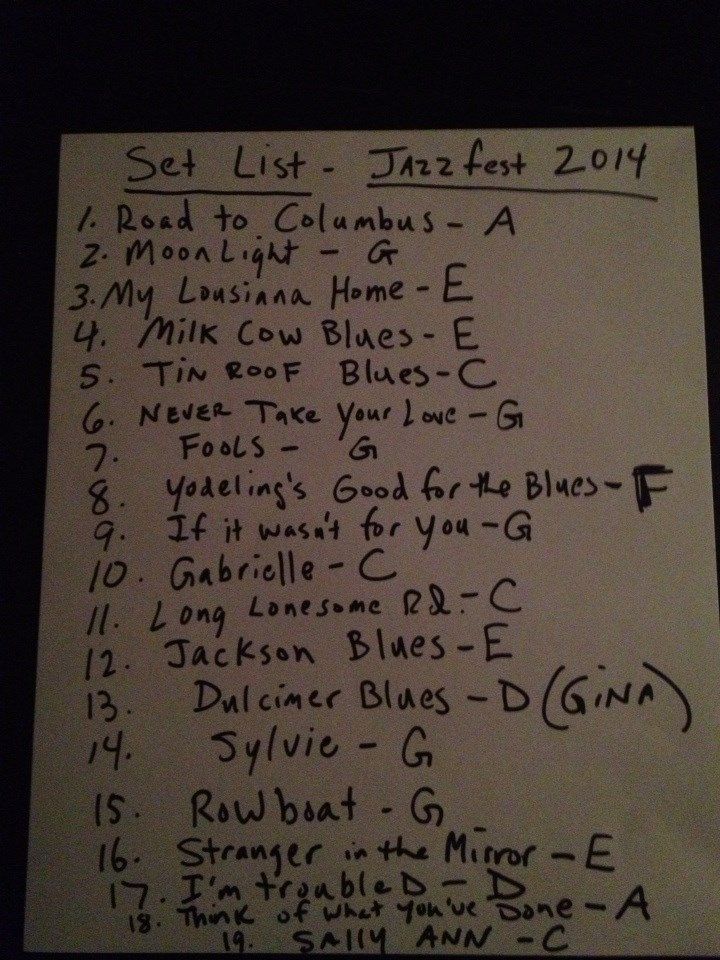 Set List - Jazzfest 2014
1. Road to Columbus - A
2. Moonlight - G
3. My Lousiana Home - E
4. Milk Cow Blues - E
5. Tin Roof Blues - C
6. Never Take Your Love - G
7. Fools - G
8. Yodeling's Good for the Blues - F
9. If it wasn't for you - G
10. Gabrielle - C
11. Long Lonesome Rd. - C
12. Jackson Blues - E
13. Dulcimer Blues - D (GINA)
14. Sylvie - G
15. Rowboat - G
16. Stranger in the Mirror - E
17. I'm troubled - D
18. Think of what you've Done - A
19. SALLY ANN - C